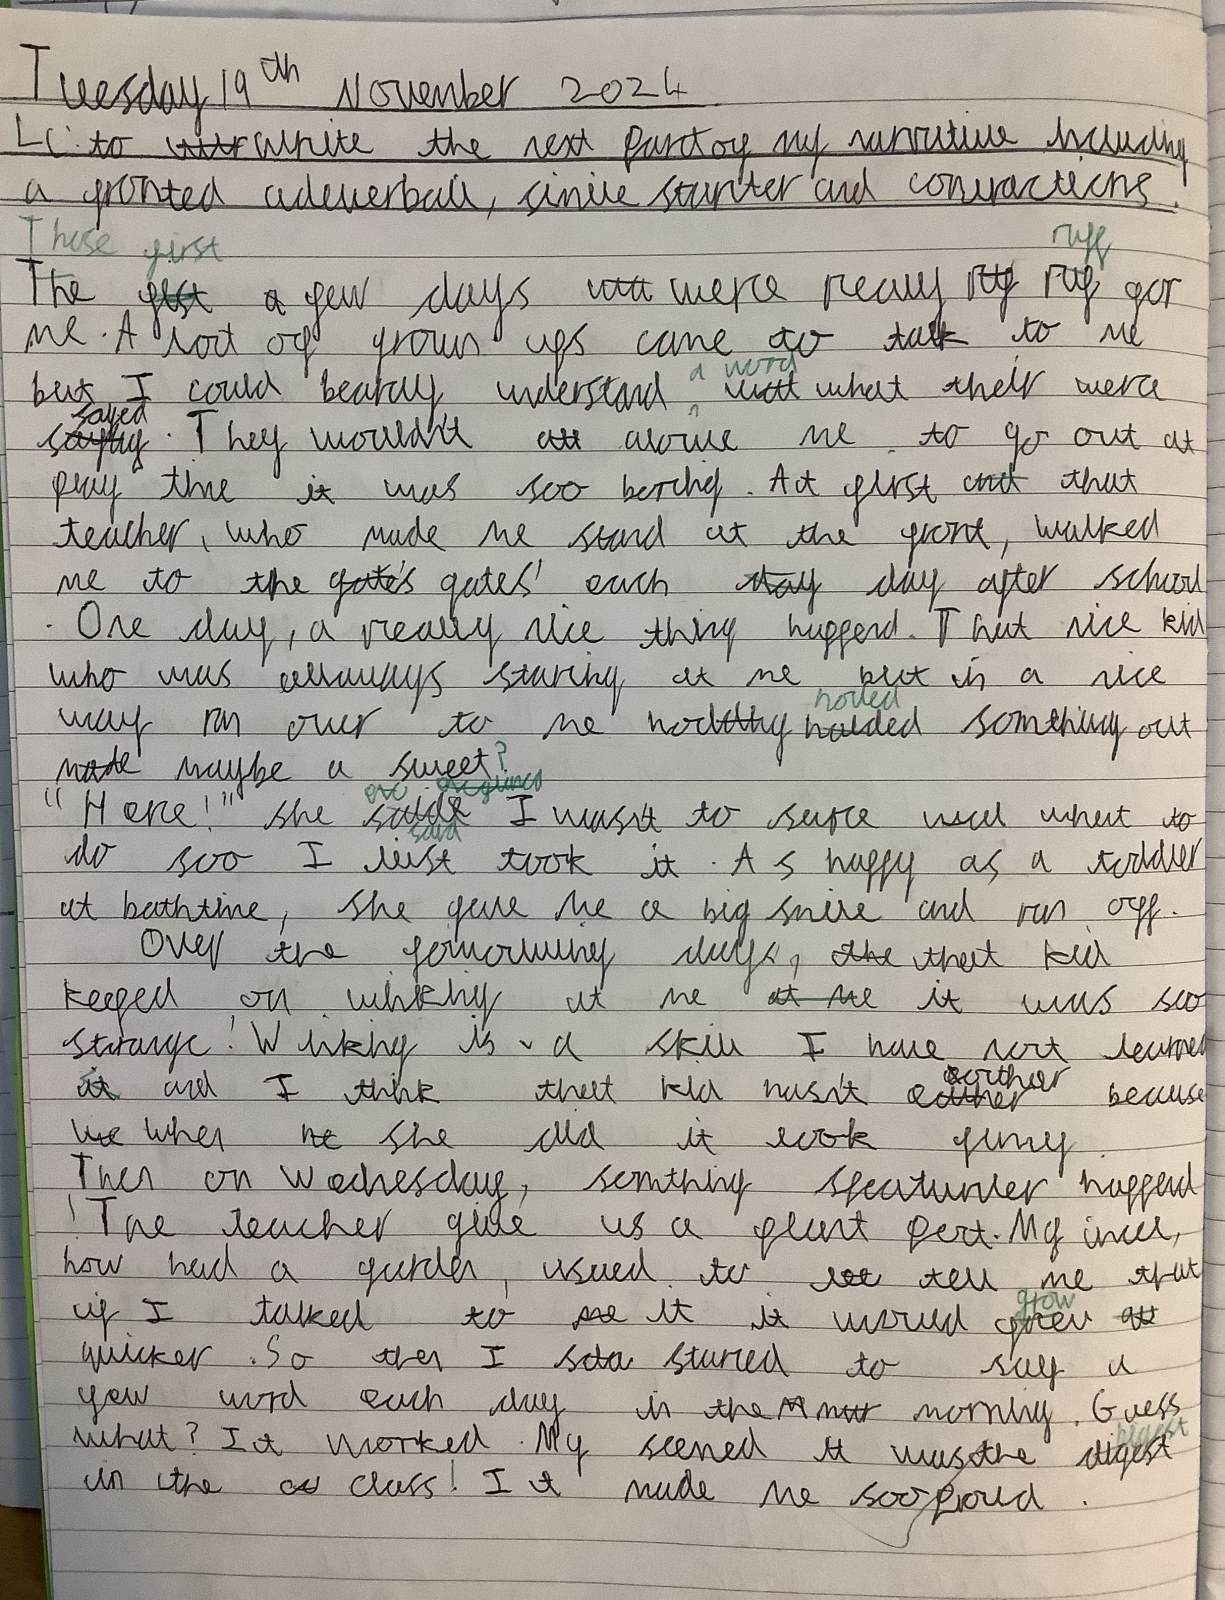 Tuesday 19th November 2024
LC: to write the next part of my narrative including
a fronted adeverball, simile starter and contractions.
These first ruff
The fist a few days were really ruf for
me. A lort of grown ups came to talk to me
a word
but I could bearly understand what their were
sayed
saying. They wouldn't alowe me to go out at
play time it was soo boring. At first that
teacher, who made me stand at the front, walked
me to the gate's gates' each day after school
. One day, a really nice thing happend. That nice kid
who was allways staring at me but in a nice
holled
way ran over to me holded somthing out
maybe a sweet?
exclaimed
"Here!" she said I wasn't to sure what to
said
do soo I just took it. As happy as a toddler
at bathtime, she gave me a big smile and ran off.
Over the following days, the that kid
keeped on winking at me at me it was soo
strange! Winking is a skill I have nort learned
eorther
it and I think that kid hasn't because
when he she did it look funny.
Then on Wednesday, somthing speatuler happend
! The teacher give us a plant port. My uncel,
how had a garden, usued to tell me that
grow
if I talked to me it it would grew
quicker. So then I started to say a
few word each day in the morning. Guess
bigest
what? It worked. My seened it was the digest
in the class! It made me soo proud.